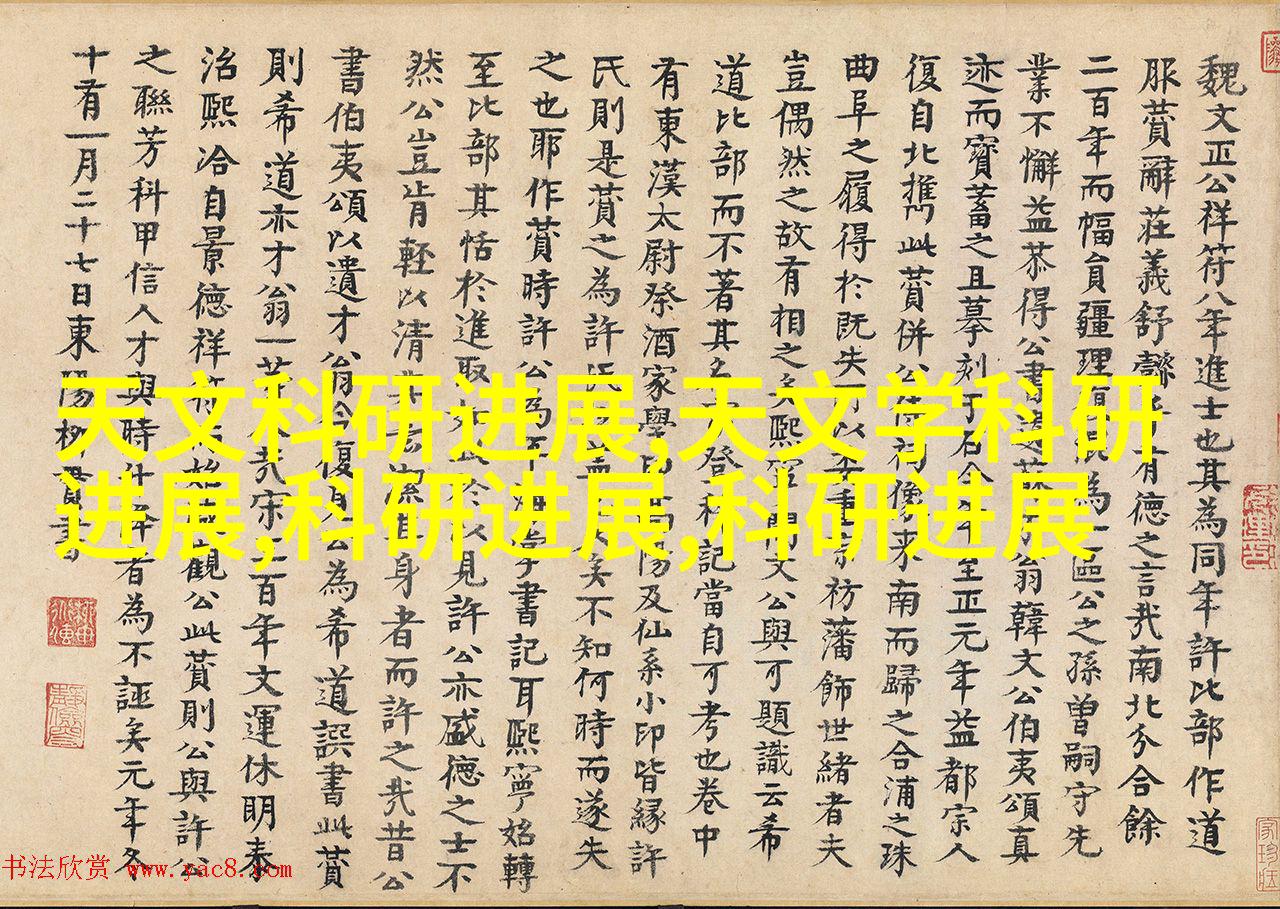 魏文正公祥符八年進士也其為同年許比部作道
服贊辭莊義舒有德之言㢤南北分合餘
二百年而幅員疆理為一區公之孫曾嗣守先
業不懈益恭得公書遺翁韓文公伯夷頌真
迹而寶蓄之且摹刻于石今至正元年益都宗人
復自北攜此贊併公祠像来南而歸之合浦之珠
曲阜之履得於既失以重祊藩飾世緒者夫
豈偶然之故有相之熙寧間文公與可題識云希
道比部而不著其名登科記當自可考也卷中
有東漢太尉祭酒家學高陽及仙系小印皆緣許
氏則是贊之為許氏矣不知何時而遂失
之也耶作贊時許公為平海書記耳熙寧始轉
至比部其恬於進取以見許公亦盛德之士不
然公豈肯輕以清潔身者而許之㢤昔公
書伯夷頌以遺才翁今復見公為希道譔書此贊
則希道亦才翁一等人㢤宋三百年文運休明泰
治熙洽自景德祥符始觀公此贊則公與許公
之聯芳科甲信人才與時升降者為不誣矣元年冬
十有一月二十七日東陽柳貫書
天文科研进展,天文学科研
进展,科研进展,科研进展
书法欣赏 www.yac8.com